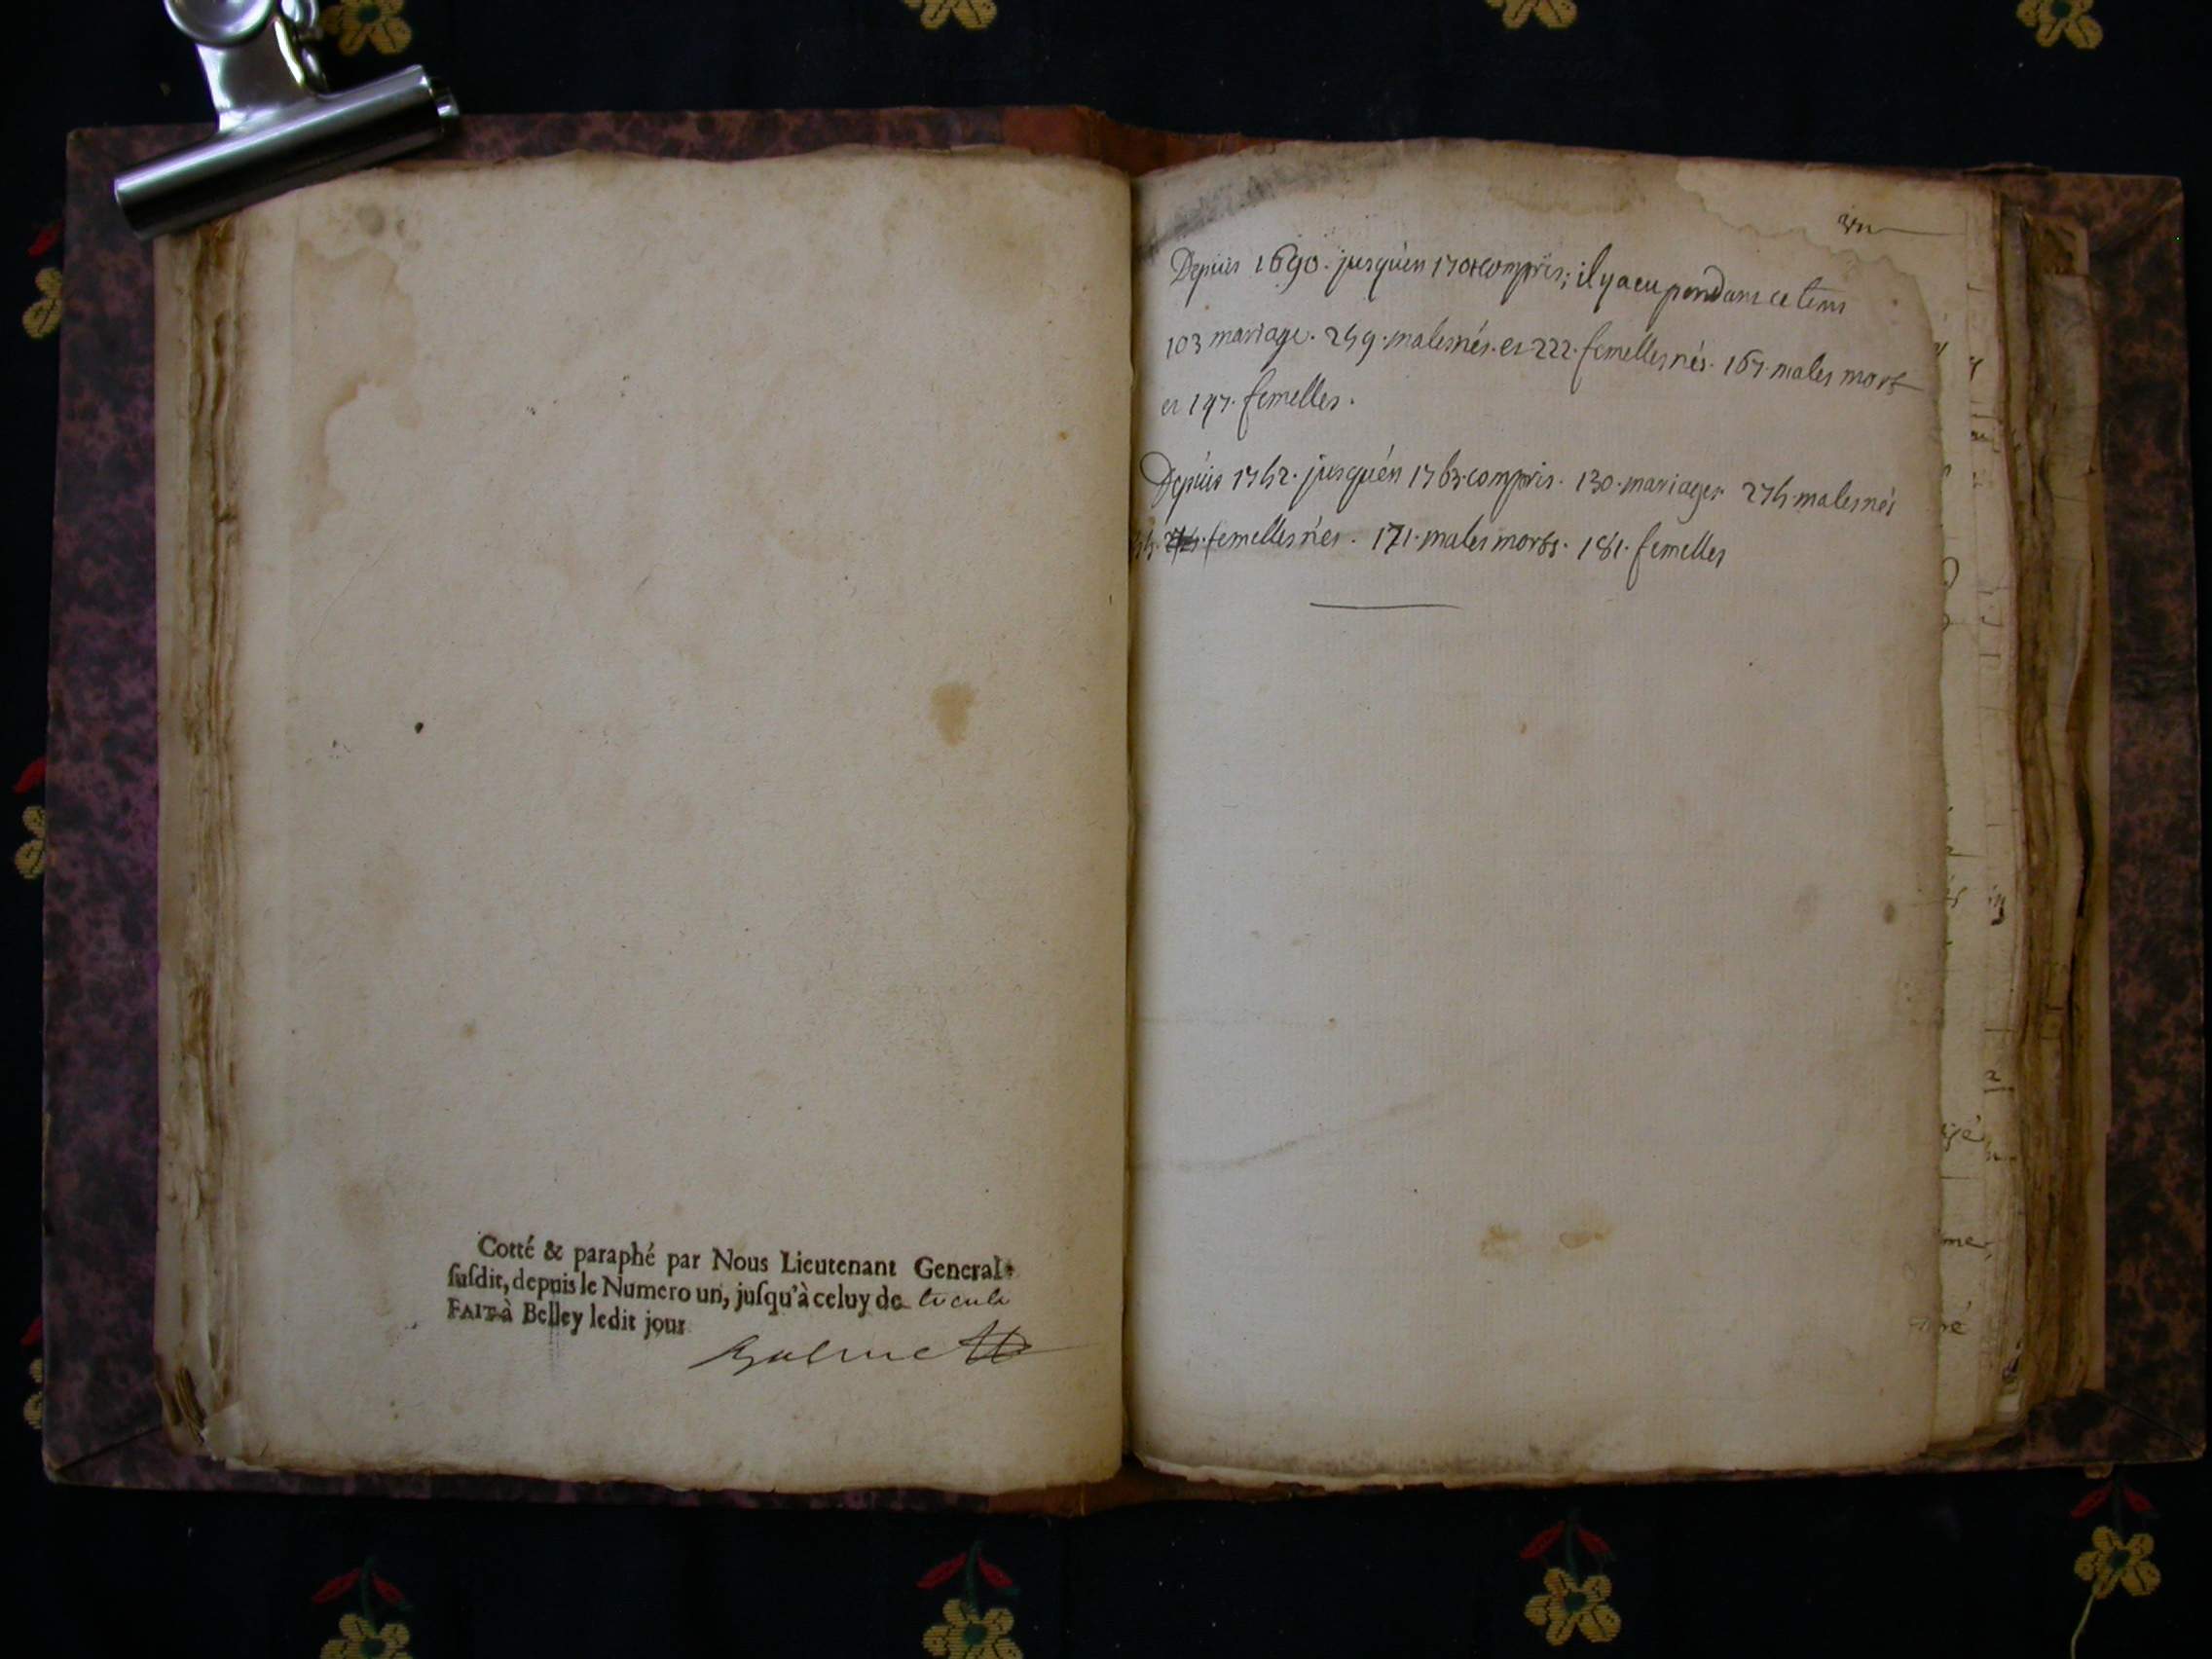 Cotté & paraphé par Nous Lieutenant General
ſuſdit, depuis le Numero un, juſqu'à celuy de
FAIT à Belley ledit jour
Depuis 1690. jusquén compris; il y a eu pendant ce tems
103 mariage. 249. males nés. et 222. femelles nés. 167. males mort
et 147. femelles.
Depuis 1742. jusquén 1763. compris. 130. mariages 274. males nés
femelles nés. 171. males morts. 181. femelles